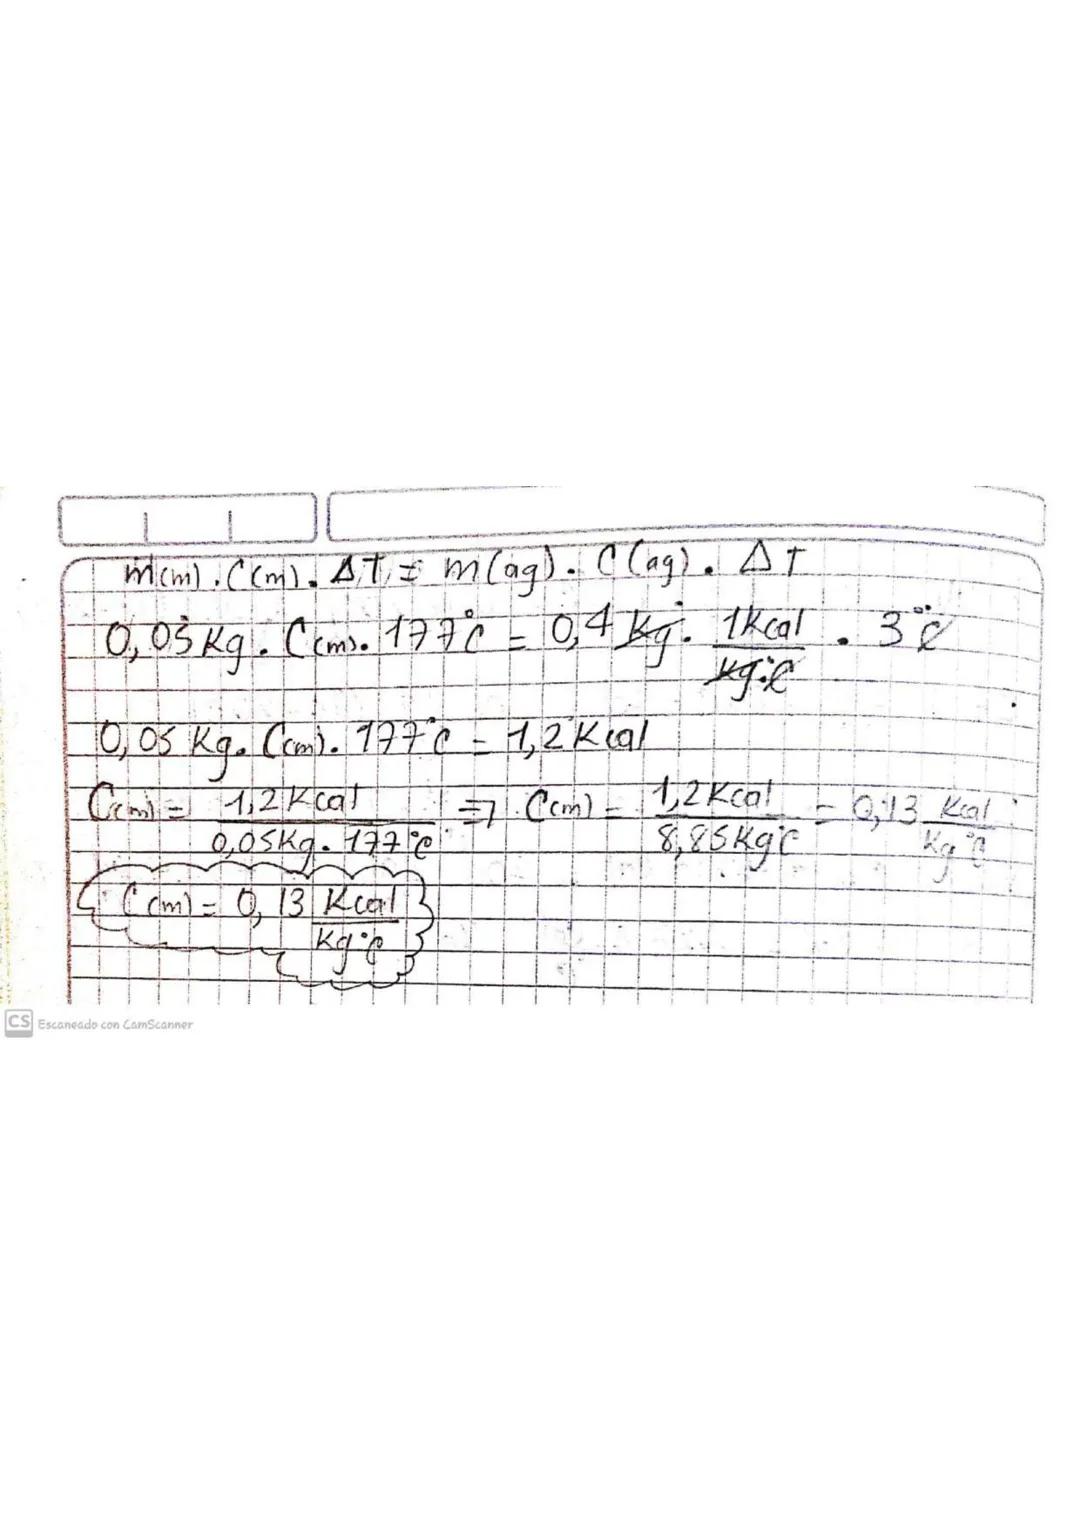 m(m) . C(m) . ΔT = m(ag) . C(ag) . ΔT
0,05 Kg . C(m) . 177°C = 0,4 Kg . 1Kcal/Kg°C . 3°C
0,05 Kg . C(m) . 177°C = 1,2 Kcal
C(m) = 1,2 Kcal/0,05Kg . 177°C ⇒ C(m) = 1,2 Kcal/8,85Kg°C = 0,13 Kcal/Kg°C
C(m) = 0,13 Kcal/Kg°C
CS Escaneado con CamScanner